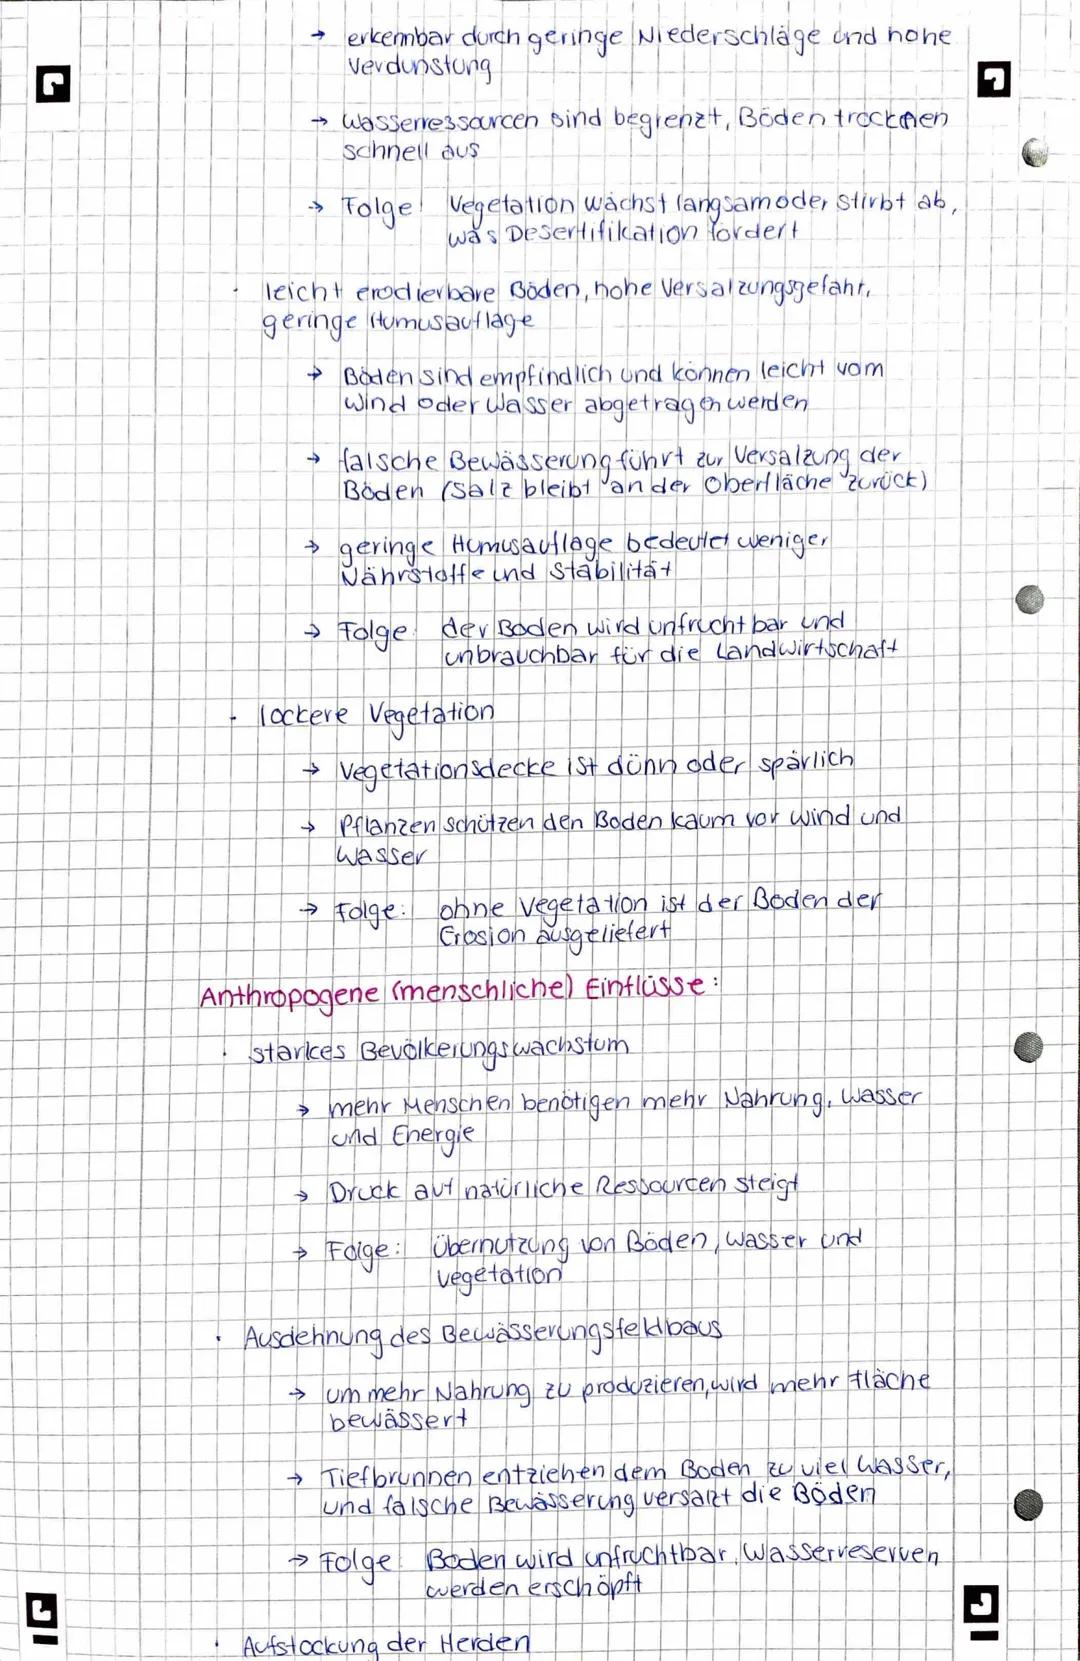 → erkennbar durch geringe Niederschläge und hohe
Verdunstung
→ Wasserressourcen sind begrenzt, Böden trocknen
schnell aus
→ Folge: Vegetation wächst langsam oder stirbt ab,
was Desertifikation fördert
· leicht erodierbare Böden, hohe Versalzungsgefahr,
geringe Humusauflage
→ Böden sind empfindlich und können leicht vom
Wind oder Wasser abgetragen werden
→ falsche Bewässerung führt zur Versalzung der
Böden (Salz bleibt an der Oberfläche zurück)
→ geringe Humusauflage bedeutet weniger
Nährstoffe und Stabilität
→ Folge: der Boden wird unfruchtbar und
unbrauchbar für die Landwirtschaft
· lockere Vegetation
→ Vegetationsdecke ist dünn oder spärlich
→ Pflanzen schützen den Boden kaum vor Wind und
Wasser
→ Folge: ohne Vegetation ist der Boden der
Erosion ausgeliefert
Anthropogene (menschliche) Einflüsse:
· starkes Bevölkerungswachstum
→ mehr Menschen benötigen mehr Nahrung, Wasser
und Energie
→ Druck auf natürliche Ressourcen steigt
→ Folge: Übernutzung von Böden, Wasser und
Vegetation
· Ausdehnung des Bewässerungsfeldbaus
→ um mehr Nahrung zu produzieren, wird mehr Fläche
bewässert
→ Tiefbrunnen entziehen dem Boden zu viel Wasser,
und falsche Bewässerung versalzt die Böden
→ Folge: Boden wird unfruchtbar, Wasserreserven
werden erschöpft
· Aufstockung der Herden